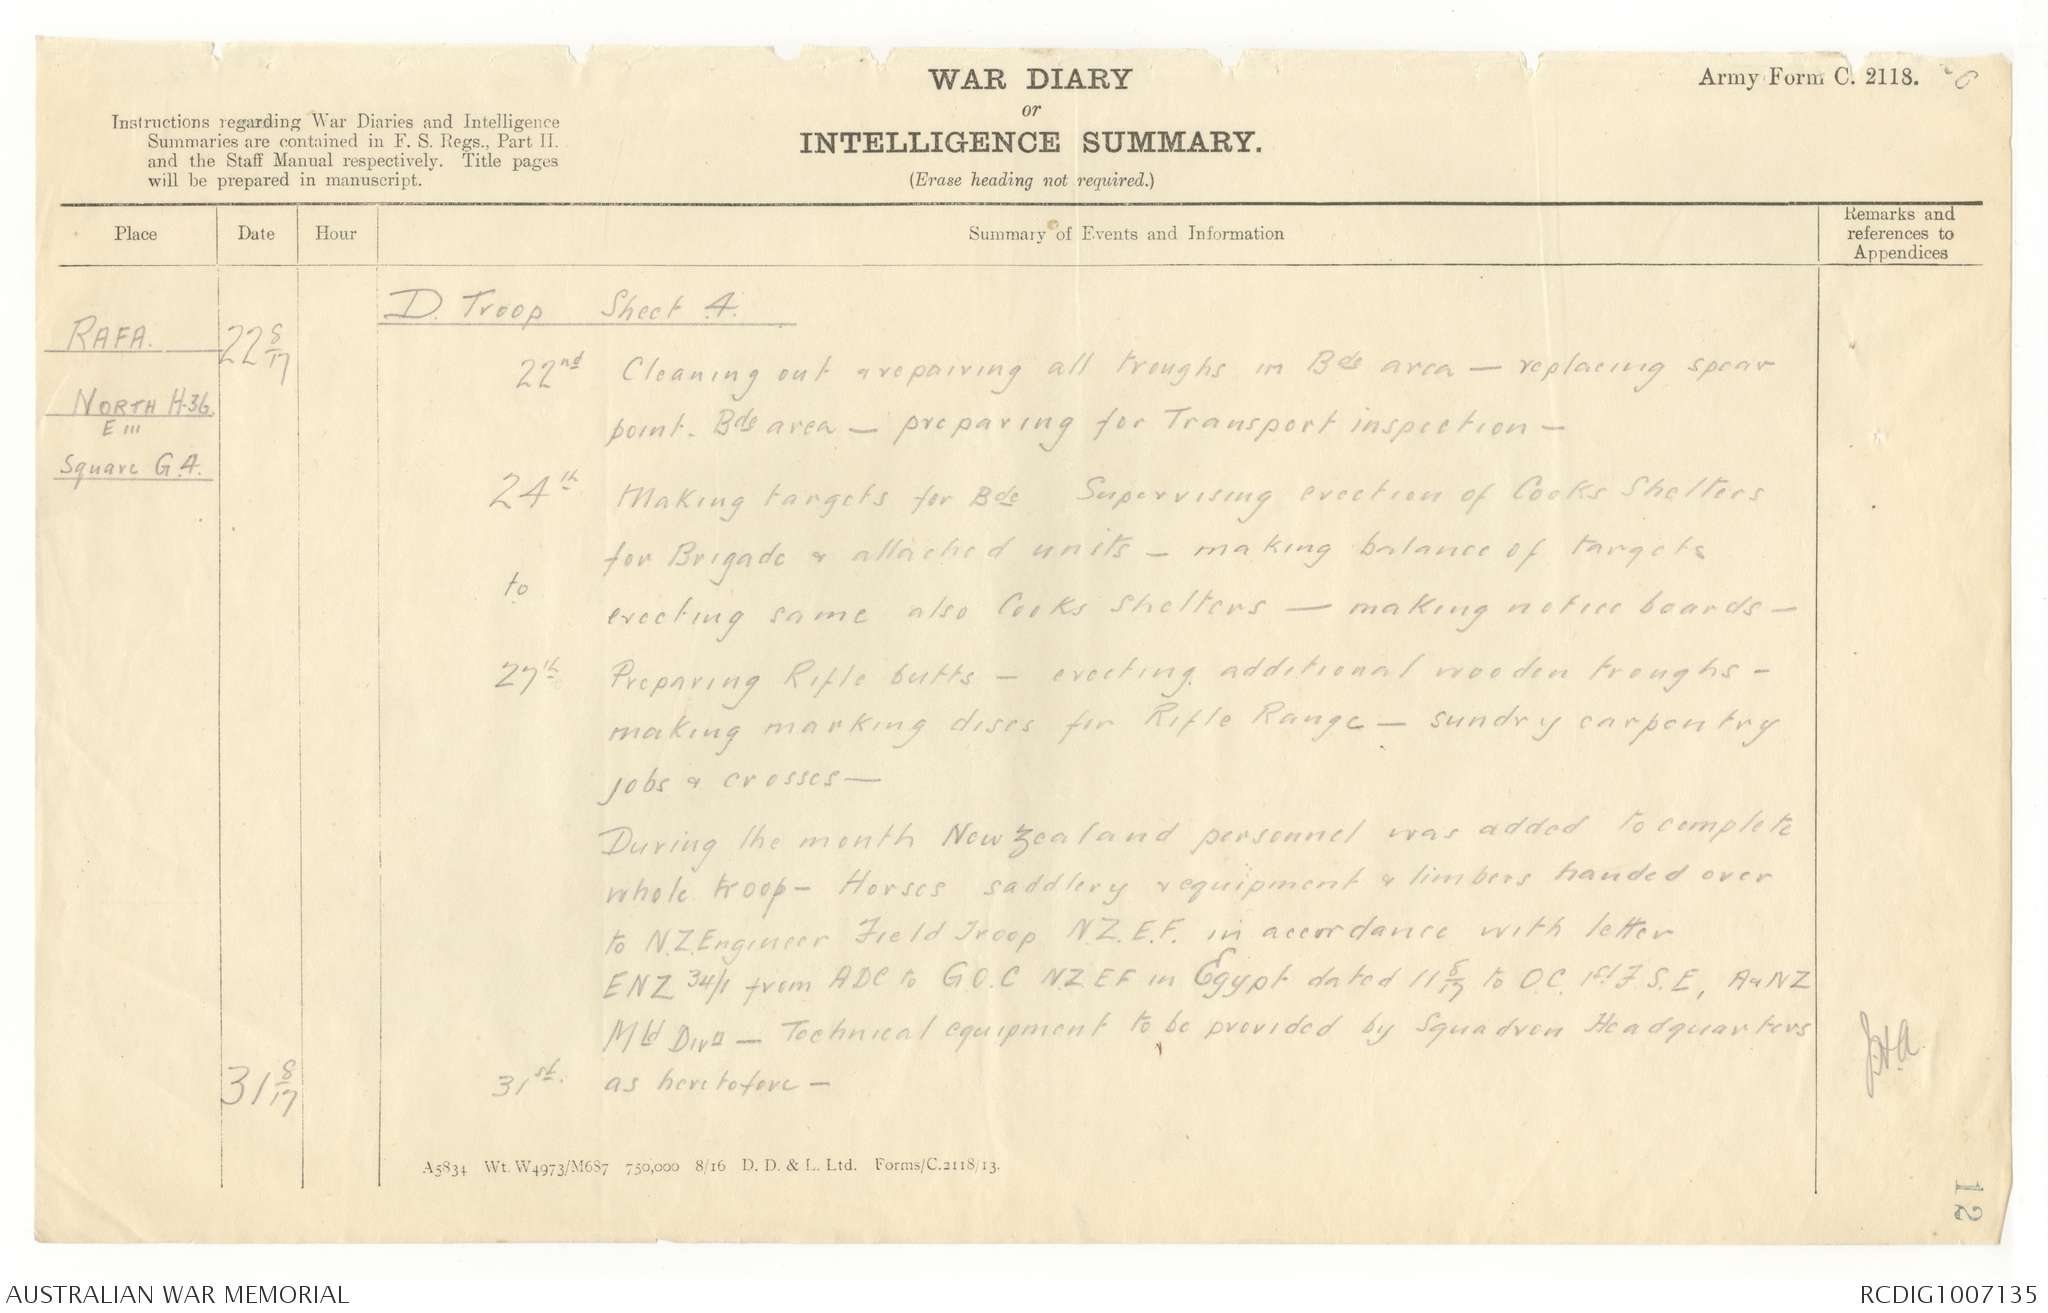 WAR DIARY
or
INTELLIGENCE SUMMARY.
(Erase heading not required.)
Army Form C. 2118.
Instructions regarding War Diaries and Intelligence
Summaries are contained in F. S. Regs., Part II.
and the Staff Manual respectively. Title pages
will be prepared in manuscript.
Place
Date
Hour
Summary of Events and Information
Remarks and
references to
Appendices
D. Troop Sheet 4.
RAFA. 22 8/17
NORTH H-36
E III
Square G.4.
22nd Cleaning out & repairing all troughs in Bde area — replacing spear
point. Bde area — preparing for Transport inspection —
24th Making targets for Bde Supervising erection of Cooks Shelters
for Brigade & attached units — making balance of targets
to
erecting same also Cooks Shelters — making notice boards —
27th Preparing Rifle butts — erecting additional wooden troughs —
making marking discs for Rifle Range — sundry carpentry
jobs & crosses —
During the month New Zealand personnel was added to complete
whole troop — Horses saddlery & equipment & limbers handed over
to N.Z. Engineer Field Troop N.Z.E.F. in accordance with letter
ENZ 34/1 from ADC to G.O.C N.Z.EF in Egypt dated 11 8/17 to O.C. 1st F.S.E, A & NZ
Mtd Divn — Technical equipment to be provided by Squadron Headquarters
31 8/17 31st. as heretofore —
A5834 Wt. W4973/M687 750,000 8/16 D. D. & L. Ltd. Forms/C.2118/13.
12
AUSTRALIAN WAR MEMORIAL
RCDIG1007135